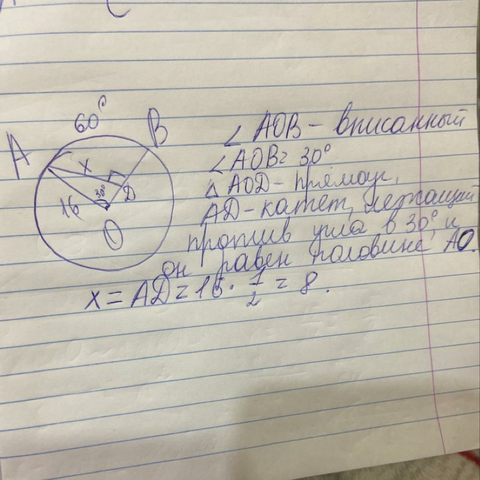 60°
A
B
x
30°
D
16
O
∠ AOB – вписанный
∠ AOB = 30°
△ AOD – прямоуг.
AD – катет, лежащий
против угла в 30° и
он равен половине AO.
x = AD = 16 · 1/2 = 8.